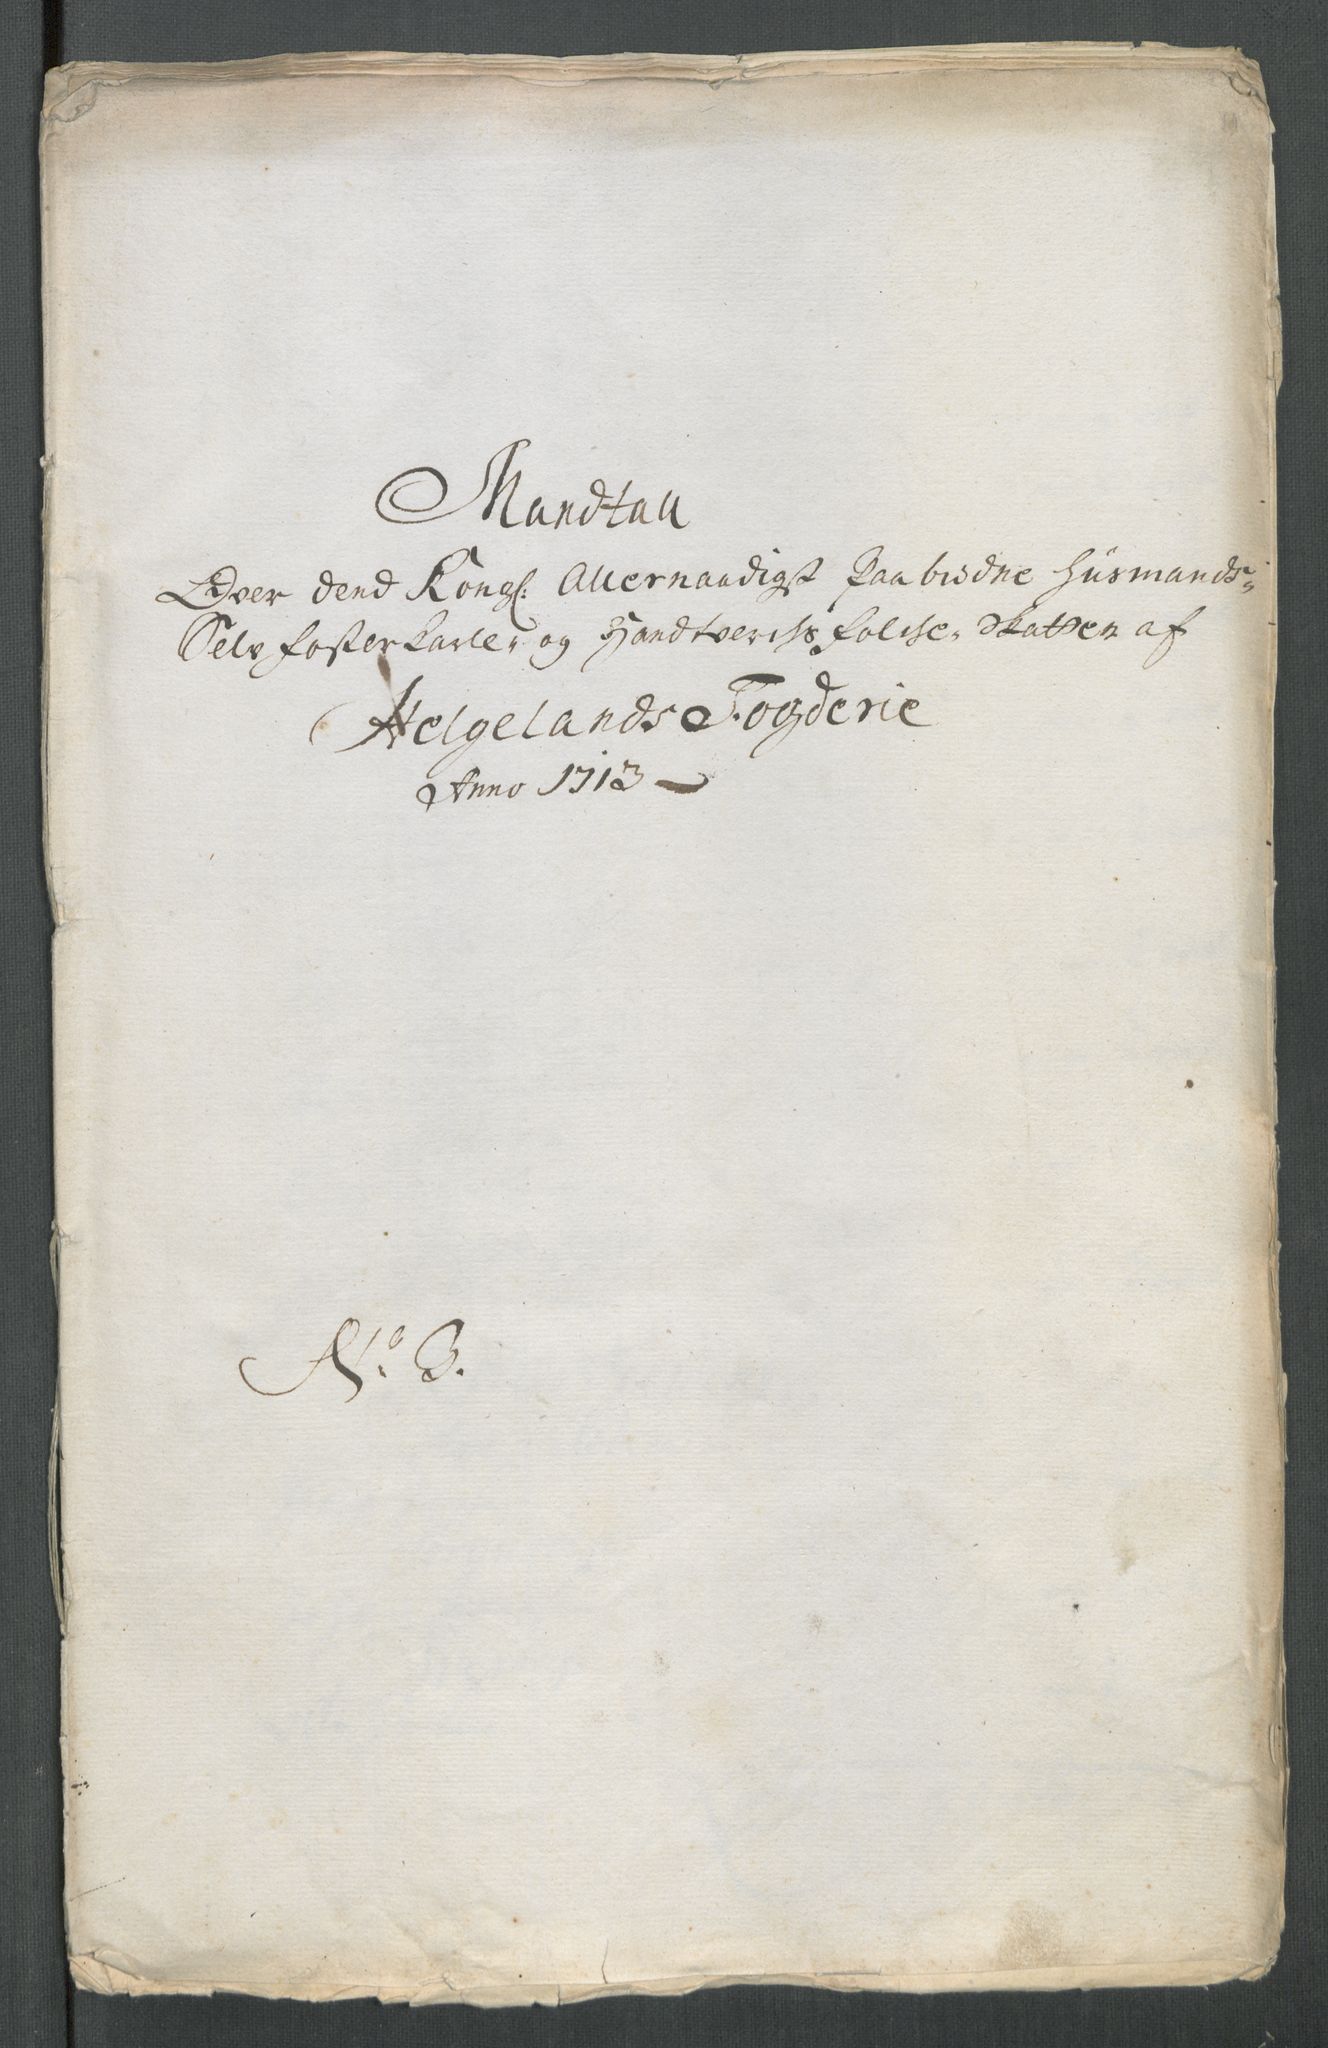 Mandtall
Over dend Kongl: Allernaadigst Paabudne Huusmands-
Selvfosterkarle- og Handtverchsfolche- Skatten af
Helgelands Fogderie
Anno 1713
No. 3.